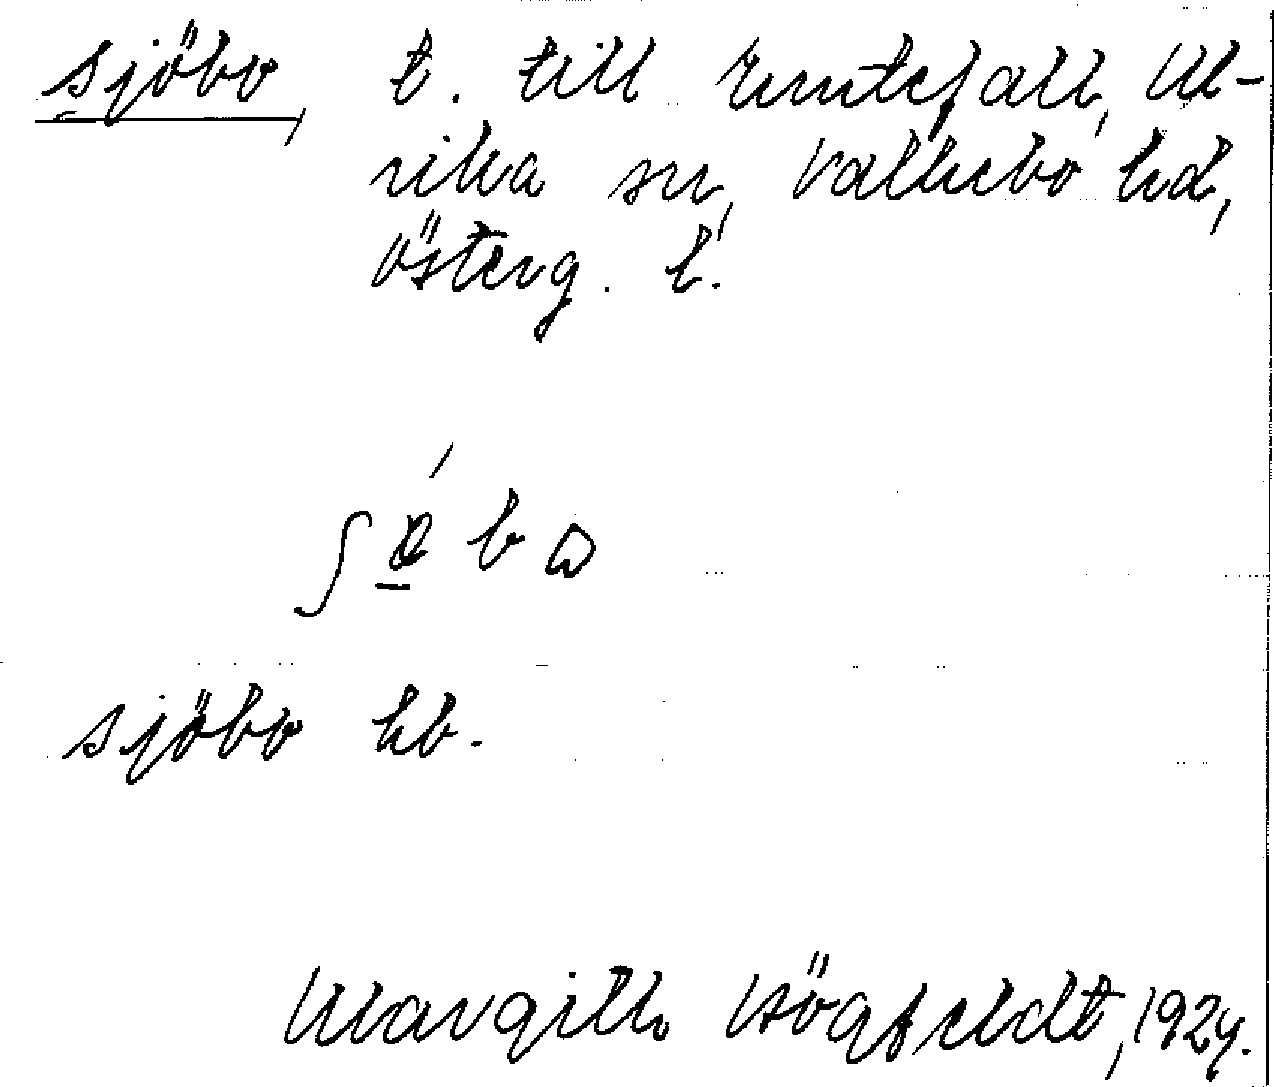 sjöbo, t. till Runtefall, Ul-
rika sn, Valkebo hd,
Österg. l.
sjöbo kb.
Margith Högfeldt, 1924.